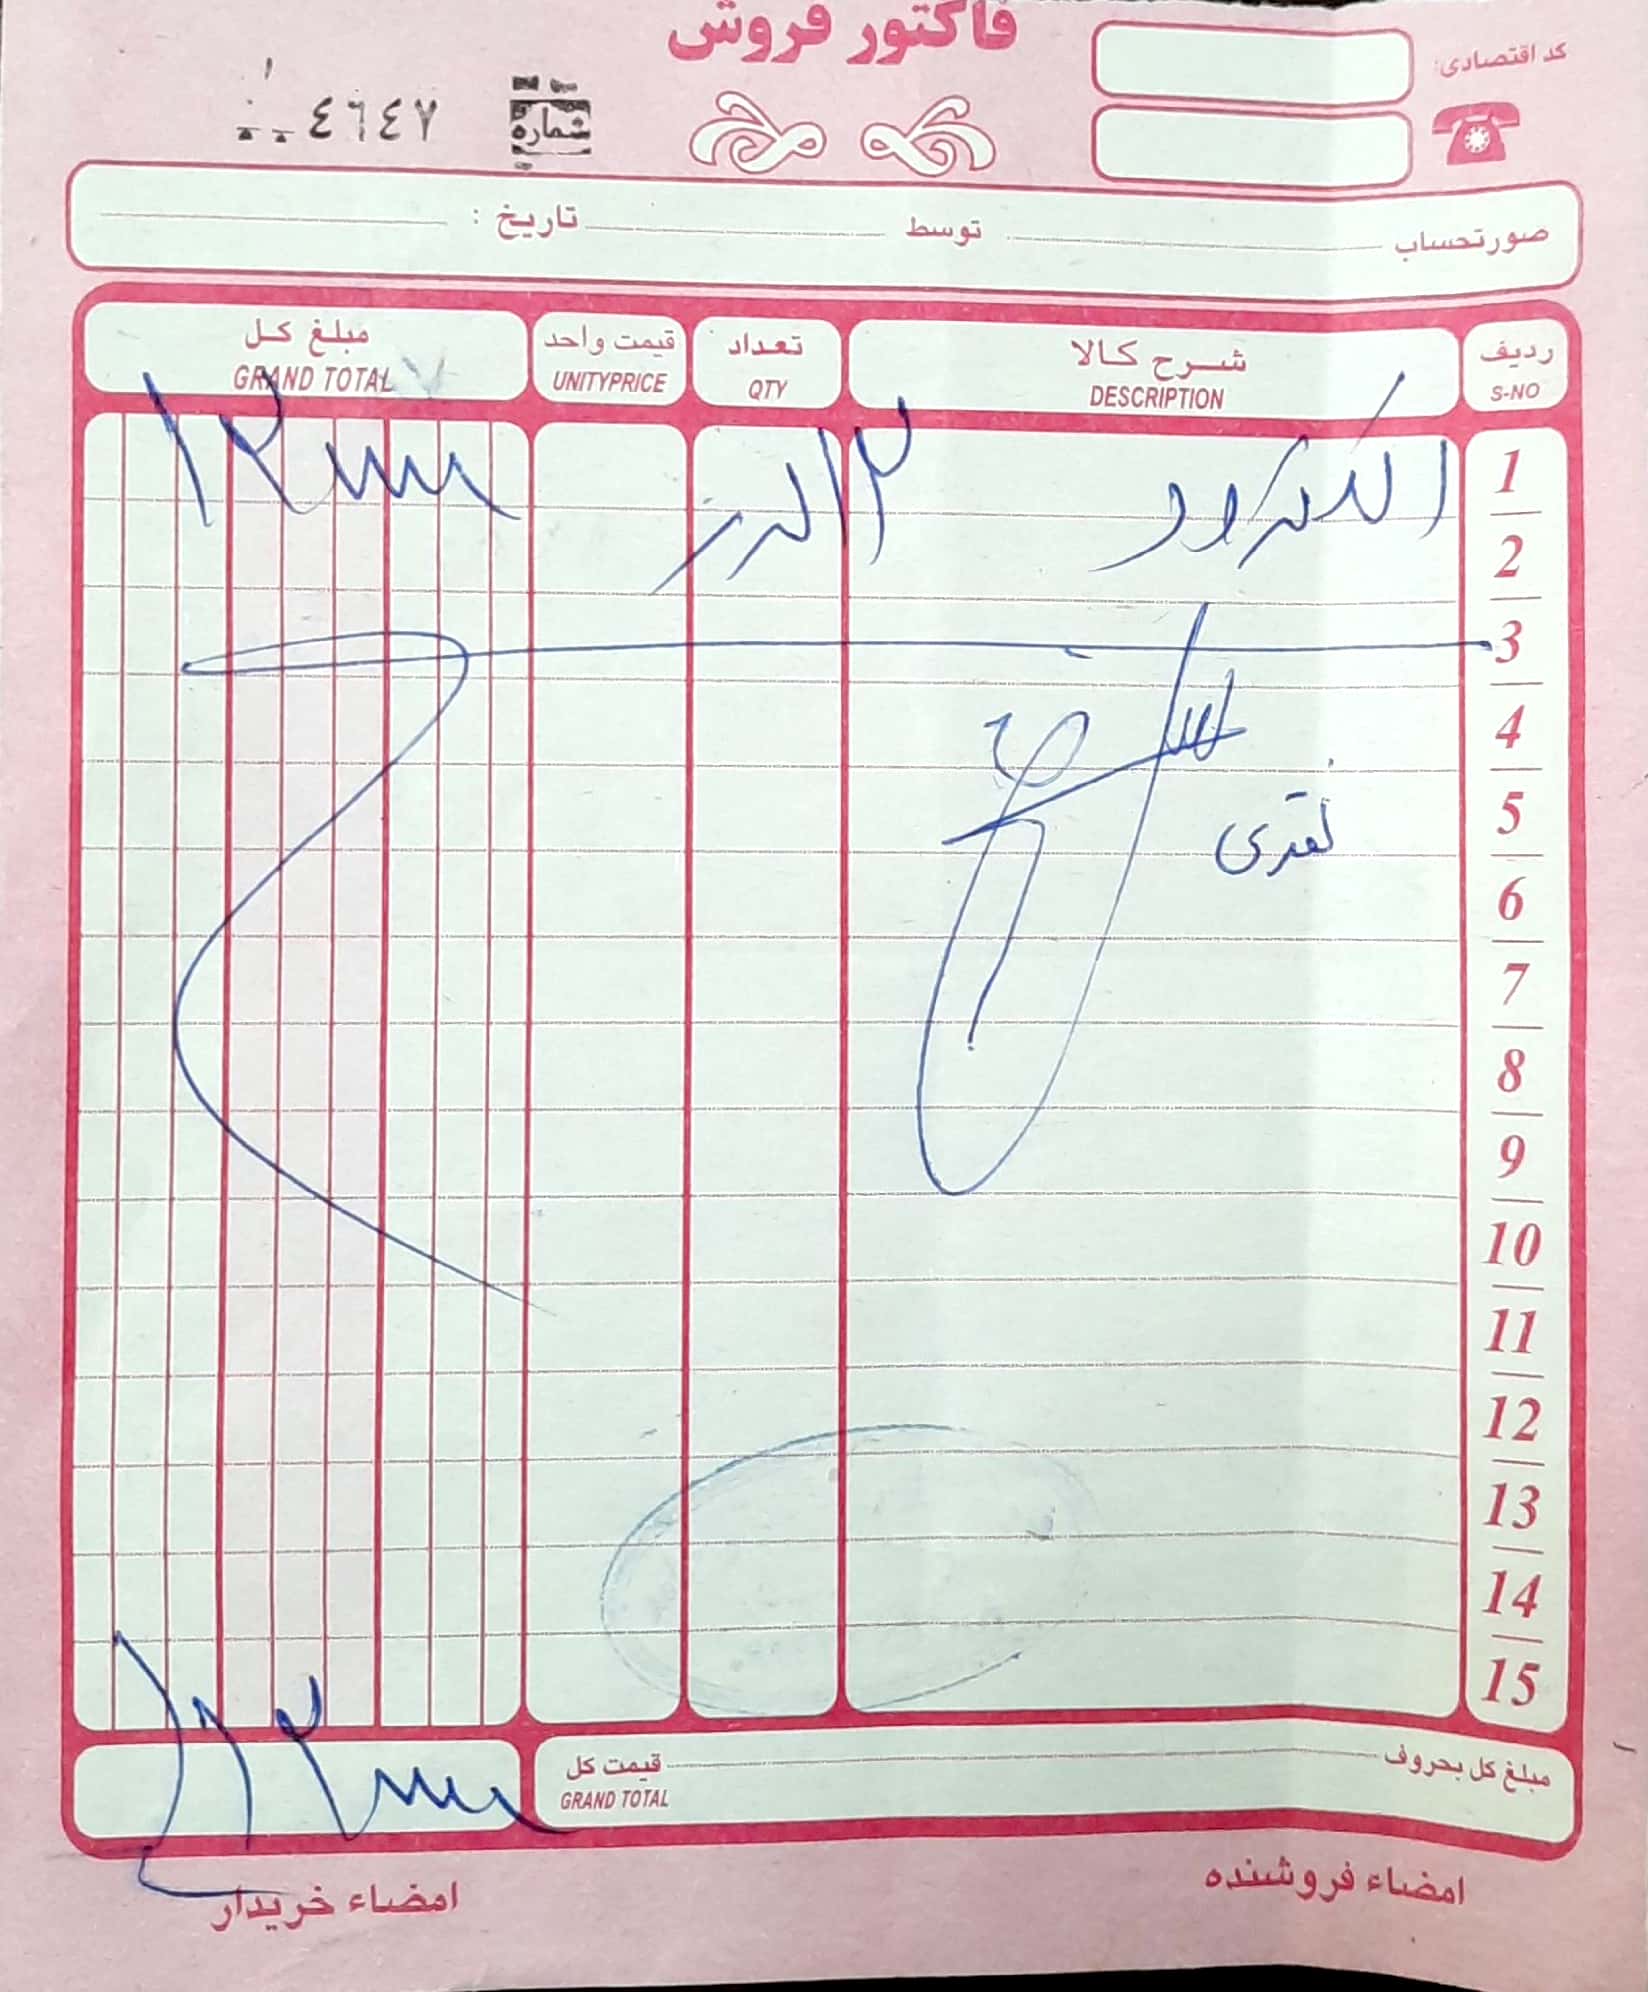 فاکتور فروش
کد اقتصادی:
شماره
٤٦٤٧
صورتحساب توسط تاریخ :
ردیف شرح کالا تعداد قیمت واحد مبلغ کل
S-NO DESCRIPTION QTY UNITYPRICE GRAND TOTAL
1 الکترود
2
3
4
5 نقدی
6
7
8
9
10
11
12
13
14
15
مبلغ کل بحروف قیمت کل
GRAND TOTAL
امضاء فروشنده امضاء خریدار